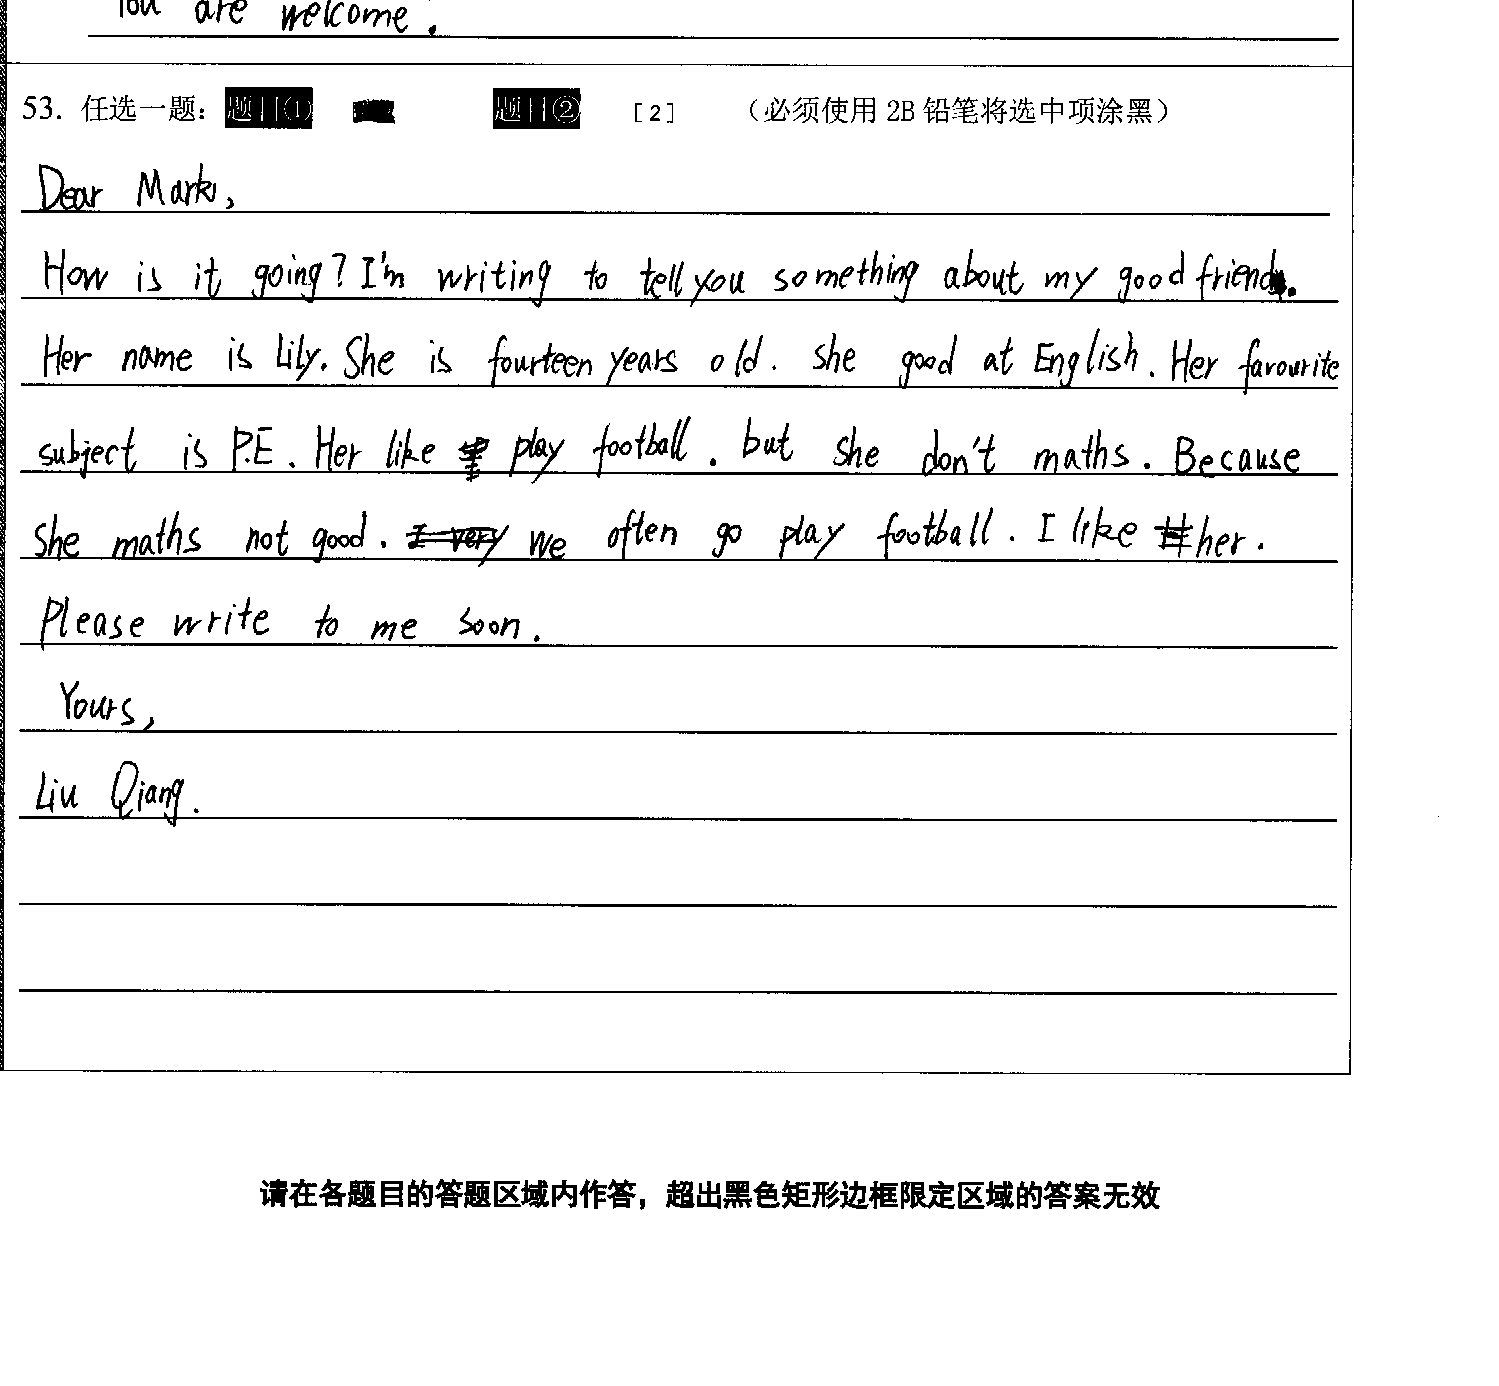 You are welcome.
53. 任选一题: 题目① 题目② [2] （必须使用 2B 铅笔将选中项涂黑）
Dear Mark,
How is it going? I'm writing to tell you something about my good friend.
Her name is Lily. She is fourteen years old. she good at English. Her favourite
subject is P.E. Her like play football. but she don't maths. Because
she maths not good. I very we often go play football. I like her.
Please write to me soon.
Yours,
Liu Qiang.
请在各题目的答题区域内作答，超出黑色矩形边框限定区域的答案无效